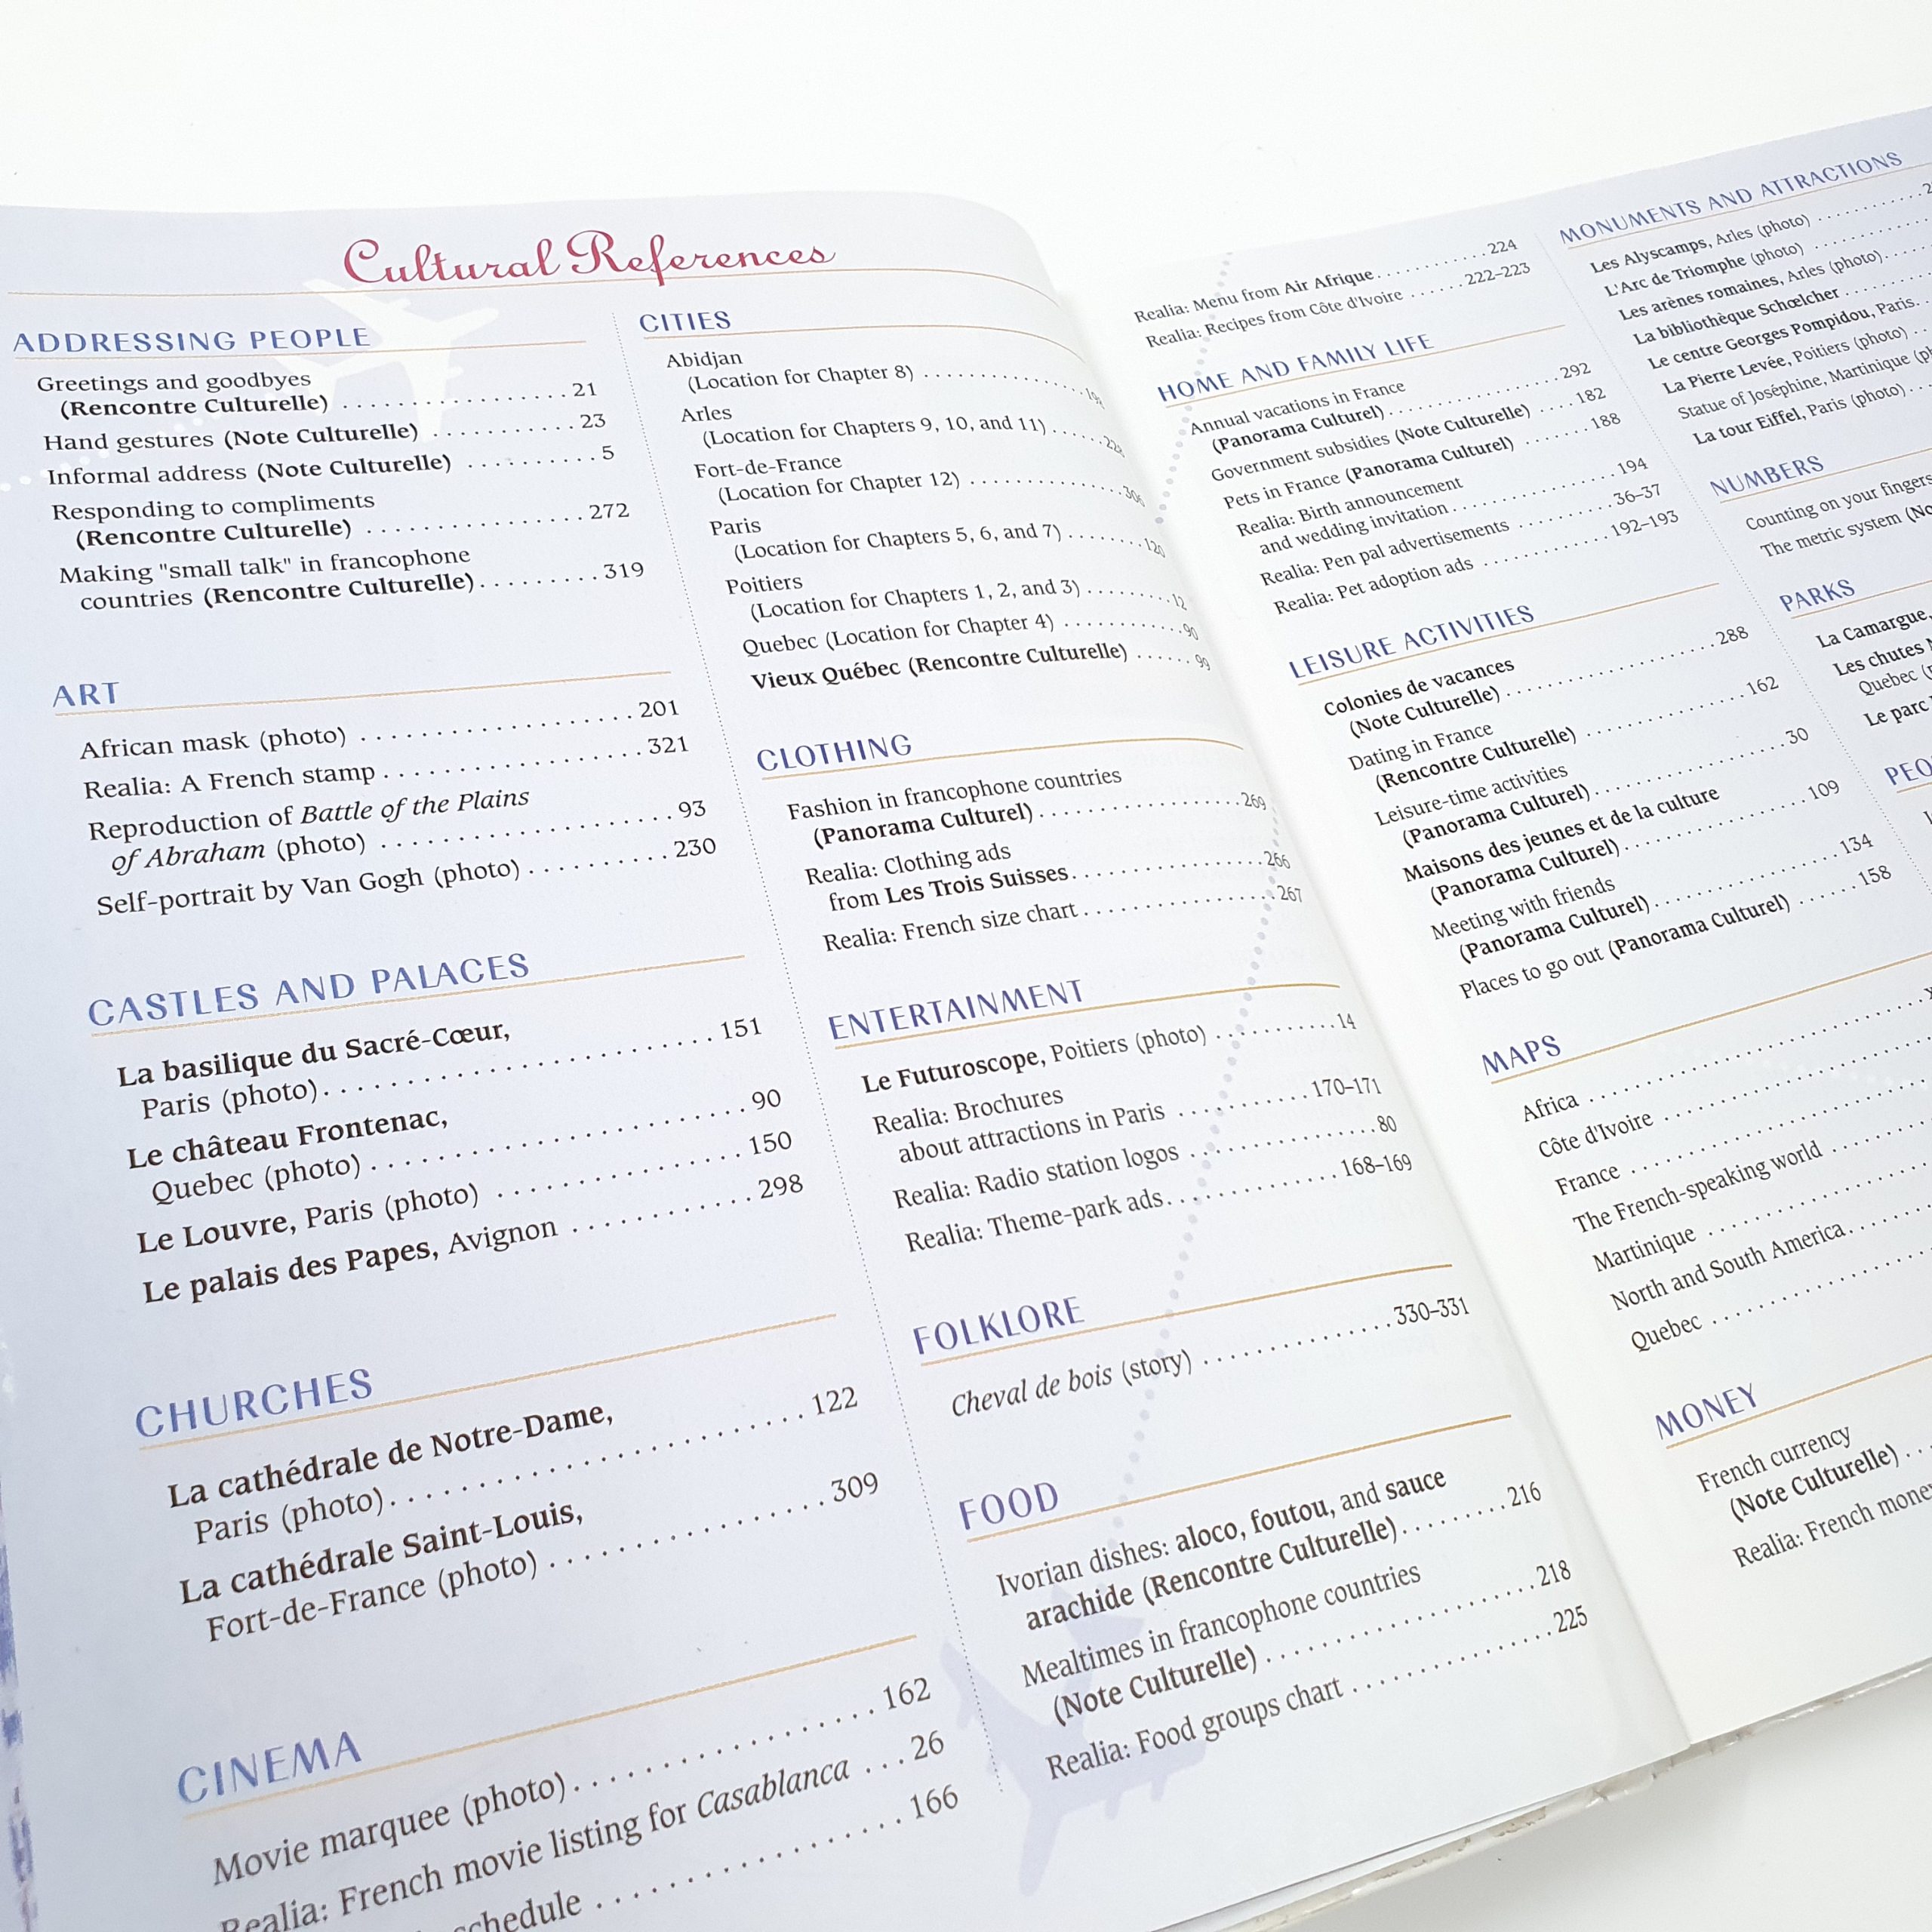 Cultural References
ADDRESSING PEOPLE
Greetings and goodbyes
(Rencontre Culturelle) . . . . . . . . . . . . . . . . . . 21
Hand gestures (Note Culturelle) . . . . . . . . . . . 23
Informal address (Note Culturelle) . . . . . . . . . . 5
Responding to compliments
(Rencontre Culturelle) . . . . . . . . . . . . . . . . . 272
Making "small talk" in francophone
countries (Rencontre Culturelle). . . . . . . . . 319
ART
African mask (photo) . . . . . . . . . . . . . . . . . . . 201
Realia: A French stamp . . . . . . . . . . . . . . . . . . 321
Reproduction of Battle of the Plains
of Abraham (photo) . . . . . . . . . . . . . . . . . . . 93
Self-portrait by Van Gogh (photo) . . . . . . . . . 230
CASTLES AND PALACES
La basilique du Sacré-Cœur,
Paris (photo). . . . . . . . . . . . . . . . . . . . . . . . 151
Le château Frontenac,
Quebec (photo) . . . . . . . . . . . . . . . . . . . . . . . 90
Le Louvre, Paris (photo) . . . . . . . . . . . . . . . 150
Le palais des Papes, Avignon . . . . . . . . . . . 298
CHURCHES
La cathédrale de Notre-Dame,
Paris (photo). . . . . . . . . . . . . . . . . . . . . . . . 122
La cathédrale Saint-Louis,
Fort-de-France (photo) . . . . . . . . . . . . . . . . 309
CINEMA
Movie marquee (photo). . . . . . . . . . . . . . . . . 162
Realia: French movie listing for Casablanca . . . 26
schedule . . . . . . . . . . . . . . . . . 166
CITIES
Abidjan
(Location for Chapter 8) . . . . . . . . . . . . . . . .
Arles
(Location for Chapters 9, 10, and 11) . . . . . . 228
Fort-de-France
(Location for Chapter 12) . . . . . . . . . . . . . . . 306
Paris
(Location for Chapters 5, 6, and 7) . . . . . . . . 120
Poitiers
(Location for Chapters 1, 2, and 3) . . . . . . . . . 12
Quebec (Location for Chapter 4) . . . . . . . . . . . . 90
Vieux Québec (Rencontre Culturelle) . . . . . . 99
CLOTHING
Fashion in francophone countries
(Panorama Culturel) . . . . . . . . . . . . . . . . . . . 269
Realia: Clothing ads
from Les Trois Suisses. . . . . . . . . . . . . . . . . 266
Realia: French size chart . . . . . . . . . . . . . . . . . 267
ENTERTAINMENT
Le Futuroscope, Poitiers (photo) . . . . . . . . . . . 14
Realia: Brochures
about attractions in Paris . . . . . . . . . . . 170–171
Realia: Radio station logos . . . . . . . . . . . . . . . . 80
Realia: Theme-park ads. . . . . . . . . . . . . . 168–169
FOLKLORE
Cheval de bois (story) . . . . . . . . . . . . . . 330–331
FOOD
Ivorian dishes: aloco, foutou, and sauce
arachide (Rencontre Culturelle). . . . . . . . . 216
Mealtimes in francophone countries
(Note Culturelle) . . . . . . . . . . . . . . . . . . . . . 218
Realia: Food groups chart . . . . . . . . . . . . . . . 225
Realia: Menu from Air Afrique. . . . . . . . . . . . 224
Realia: Recipes from Côte d'Ivoire . . . . . . 222–223
HOME AND FAMILY LIFE
Annual vacations in France
(Panorama Culturel). . . . . . . . . . . . . . . . . . 292
Government subsidies (Note Culturelle) . . . . 182
Pets in France (Panorama Culturel) . . . . . . . 188
Realia: Birth announcement
and wedding invitation . . . . . . . . . . . . . . . . 194
Realia: Pen pal advertisements . . . . . . . . . . 36–37
Realia: Pet adoption ads . . . . . . . . . . . . 192–193
LEISURE ACTIVITIES
Colonies de vacances
(Note Culturelle) . . . . . . . . . . . . . . . . . . . . . 288
Dating in France
(Rencontre Culturelle) . . . . . . . . . . . . . . . . 162
Leisure-time activities
(Panorama Culturel). . . . . . . . . . . . . . . . . . . 30
Maisons des jeunes et de la culture
(Panorama Culturel). . . . . . . . . . . . . . . . . . 109
Meeting with friends
(Panorama Culturel). . . . . . . . . . . . . . . . . . 134
Places to go out (Panorama Culturel) . . . . . . 158
MAPS
Africa . . . . . . . . . . . . . . . . . . . . . . . . . . . . .
Côte d'Ivoire . . . . . . . . . . . . . . . . . . . . . . .
France . . . . . . . . . . . . . . . . . . . . . . . . . . .
The French-speaking world . . . . . . . . . . .
Martinique . . . . . . . . . . . . . . . . . . . . . .
North and South America. . . . . . . . . .
Quebec . . . . . . . . . . . . . . . . . . . . .
MONEY
French currency
(Note Culturelle) . . .
Realia: French money
MONUMENTS AND ATTRACTIONS
Les Alyscamps, Arles (photo) . . . . . . . . . . . . 2
L'Arc de Triomphe (photo) . . . . . . . . . . . .
Les arènes romaines, Arles (photo). . . . .
La bibliothèque Schœlcher . . . . . . . . .
Le centre Georges Pompidou, Paris. .
La Pierre Levée, Poitiers (photo) . . .
Statue of Joséphine, Martinique
La tour Eiffel, Paris (photo) . .
NUMBERS
Counting on your fingers
The metric system
PARKS
La Camargue,
Les chutes
Quebec
Le parc